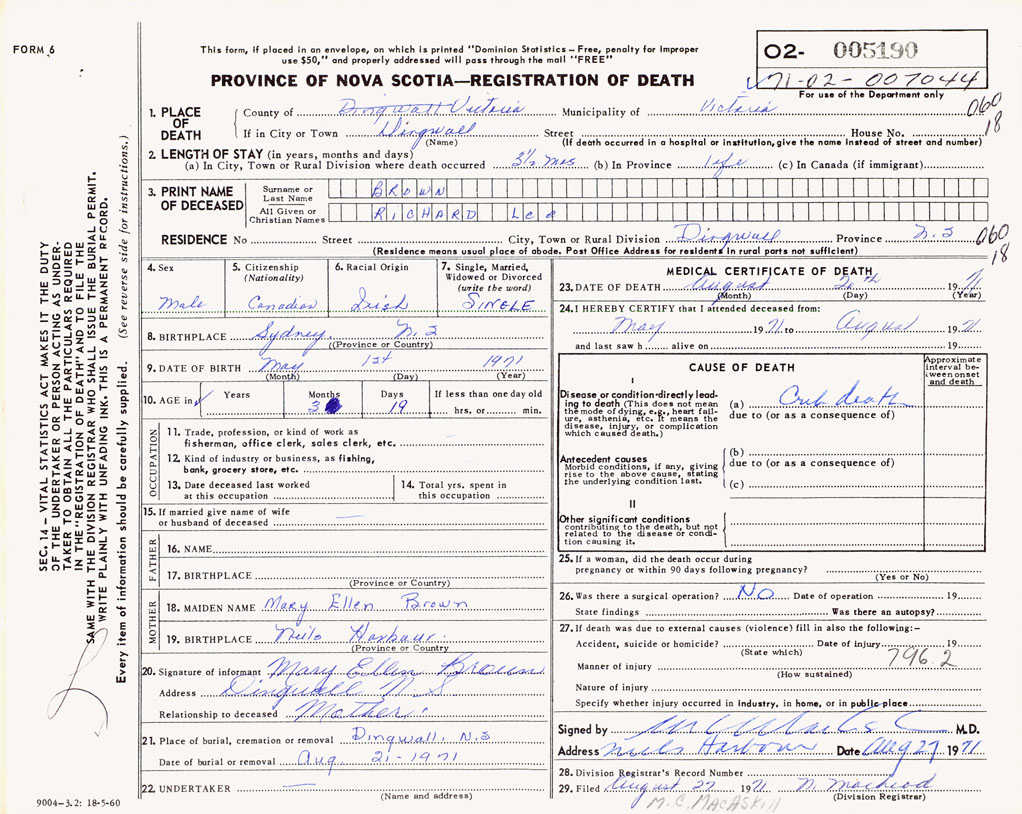 FORM 6
This form, if placed in an envelope, on which is printed "Dominion Statistics – Free, penalty for improper
use $50," and properly addressed will pass through the mail "FREE"
PROVINCE OF NOVA SCOTIA—REGISTRATION OF DEATH
02- 005190
71-02-007044
For use of the Department only
060
18
1. PLACE OF DEATH
County of Dingwall Victoria Municipality of Victoria
If in City or Town Dingwall Street House No.
(Name) (If death occurred in a hospital or institution, give the name instead of street and number)
2. LENGTH OF STAY (in years, months and days)
(a) In City, Town or Rural Division where death occurred 3½ mos (b) In Province life (c) In Canada (if immigrant)
3. PRINT NAME OF DECEASED
Surname or Last Name BROWN
All Given or Christian Names RICHARD Lee
RESIDENCE No Street City, Town or Rural Division Dingwall Province N.S
060
18
(Residence means usual place of abode. Post Office Address for residents in rural parts not sufficient)
4. Sex
Male
5. Citizenship (Nationality)
Canadian
6. Racial Origin
Irish
7. Single, Married, Widowed or Divorced (write the word)
SINGLE
8. BIRTHPLACE Sydney, N.S
((Province or Country)
9. DATE OF BIRTH May 1st 1971
(Month) (Day) (Year)
10. AGE in Years Months Days If less than one day old
3 19 hrs. or min.
OCCUPATION
11. Trade, profession, or kind of work as
fisherman, office clerk, sales clerk, etc.
12. Kind of industry or business, as fishing,
bank, grocery store, etc.
13. Date deceased last worked
at this occupation
14. Total yrs. spent in
this occupation
15. If married give name of wife
or husband of deceased
FATHER
16. NAME
17. BIRTHPLACE
(Province or Country)
MOTHER
18. MAIDEN NAME Mary Ellen Brown
19. BIRTHPLACE Neils Harbour
(Province or Country)
20. Signature of informant Mary Ellen Brown
Address Dingwall N S
Relationship to deceased Mother
21. Place of burial, cremation or removal Dingwall, N.S
Date of burial or removal Aug. 21-1971
22. UNDERTAKER
(Name and address)
MEDICAL CERTIFICATE OF DEATH
23. DATE OF DEATH August 20th 1971
(Month) (Day) (Year)
24. I HEREBY CERTIFY that I attended deceased from:
May 1971 to August 1971
and last saw h alive on 19
CAUSE OF DEATH
Approximate interval between onset and death
I
Disease or condition directly leading to death (This does not mean the mode of dying, e.g., heart failure, asthenia, etc. It means the disease, injury, or complication which caused death.)
(a) Crib death
due to (or as a consequence of)
Antecedent causes
Morbid conditions, if any, giving rise to the above cause, stating the underlying condition last.
(b)
due to (or as a consequence of)
(c)
II
Other significant conditions
contributing to the death, but not related to the disease or condition causing it.
25. If a woman, did the death occur during
pregnancy or within 90 days following pregnancy?
(Yes or No)
26. Was there a surgical operation? NO Date of operation 19
State findings Was there an autopsy?
27. If death was due to external causes (violence) fill in also the following:–
Accident, suicide or homicide? Date of injury 19
(State which)
796.2
Manner of injury
(How sustained)
Nature of injury
Specify whether injury occurred in industry, in home, or in public place
Signed by M.D.
Address Neils Harbour Date Aug 27 1971
28. Division Registrar's Record Number
29. Filed August 27 1971 N. Macleod
(Division Registrar)
M.C. MacASKILL
SEC. 14 – VITAL STATISTICS ACT MAKES IT THE DUTY
OF THE UNDERTAKER OR PERSON ACTING AS UNDER-
TAKER TO OBTAIN ALL THE PARTICULARS REQUIRED
IN THE "REGISTRATION OF DEATH" AND TO FILE THE
SAME WITH THE DIVISION REGISTRAR WHO SHALL ISSUE THE BURIAL PERMIT.
WRITE PLAINLY WITH UNFADING INK. THIS IS A PERMANENT RECORD.
Every item of information should be carefully supplied. (See reverse side for instructions.)
9004–3.2: 18-5-60